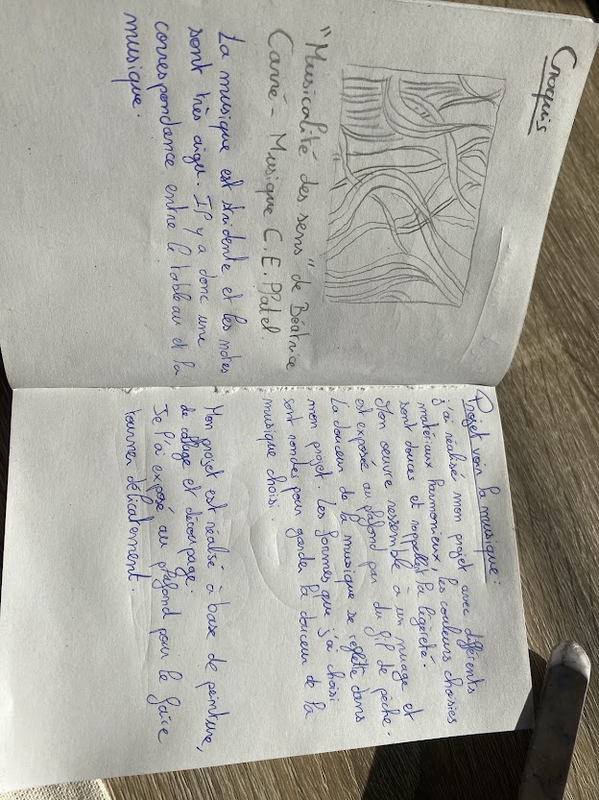 Croquis
"Musicalité des sens" de Béatrice
Carré - Musique C. E. Platel.
La musique est stridente et les notes
sont très aigu. Il y a donc une
correspondance entre le tableau et la
musique.
Projet voir la musique :
J'ai réalisé mon projet avec différents
matériaux harmonieux, les couleurs choisies
sont douces et rappellent la légèreté.
Mon oeuvre ressemble à un nuage et
est exposé au plafond par du fil de pêche.
La douceur de la musique se reflette dans
mon projet. Les formes que j'ai choisi
sont rondes pour garder la douceur de la
musique choisi.
Mon projet est réalisé à base de peinture,
de collage et découpage.
Je l'ai exposé au plafond pour le faire
tourner délicatement.